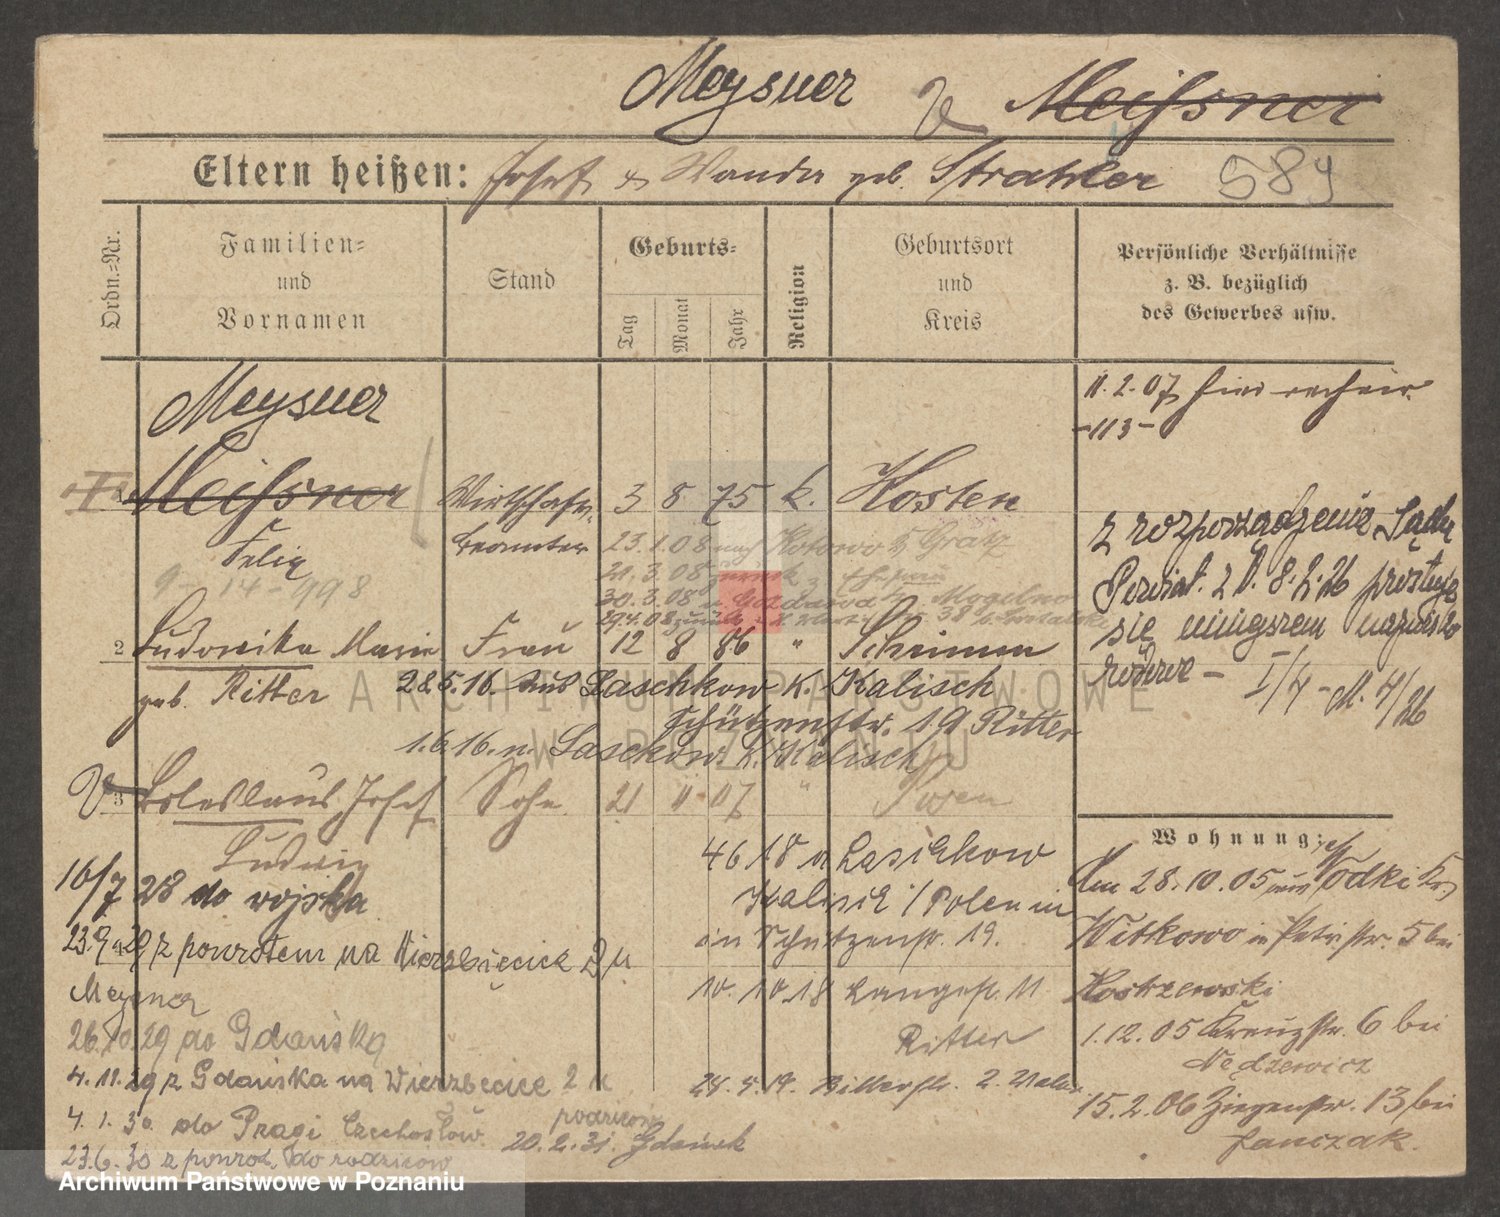 Meysner
Meißner
Eltern heißen: Josef & Wanda geb. Strahler 589
Ordn.=Nr.
Familien=
und
Vornamen
Stand
Geburts=
Tag
Monat
Jahr
Religion
Geburtsort
und
Kreis
Persönliche Verhältnisse
z. B. bezüglich
des Gewerbes usw.
Meysner
11.2.07
-113-
1 Meißner Wirtschafts 3 8 75 k. Kosten
Felix beamter 23.1.08 nach Kotowo b Grätz
9-14-998
21.3.08 zurück
30.3.08 n. Mogilno
29.4.08 zurück 38 b.
2 Ludowika Marie Frau 12 8 86 " Schrimm
geb. Ritter 28.5.16. aus Laschkow K. Kalisch
Schützenstr. 19 Ritter
1.6.16. n. Laschkow K. Kalisch
z rozporządzenia Sądu
Powiat. z d. 8.2.26 prostuje
się niniejszem nazwisko
rodowe - I/4 - M. 4/26
3 Boleslaus Josef Sohn 21 11 07 " Posen
Ludwig
16/7 28 do wojska
23.9.29 z powrotem na Wierzbięcice 2 u
Meysner
26.10.29 do Gdańska
4.11.29 z Gdańska na Wierzbięcice 2 u
rodziców
4.1.30 do Pragi Czechosłow.
20.2.31. Gdańsk
23.6.30 z powrot. do rodziców
4 6 18 n Laschkow
Kalisch / Polen
in Schützenstr. 19.
10.10.18 Langestr. 11
Ritter
24.4.19. Ritterstr. 2.
Wohnung:
Am 28.10.05 aus Wódki Kr.
Witkowo in Petristr. 5 bei
Kostrzewski
1.12.05 Kreuzstr. 6 bei
Nędzewicz
15.2.06 Ziegenstr. 13 bei
Janczak.
ARCHIWUM PAŃSTWOWE
W POZNANIU
Archiwum Państwowe w Poznaniu